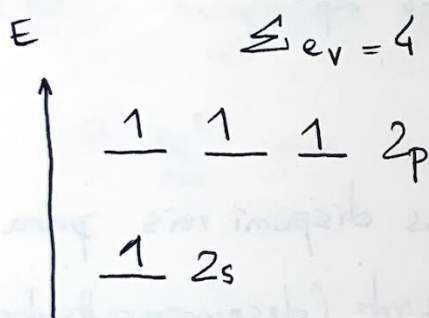 E
Σ e_v = 4
1 1 1 2p
1 2s